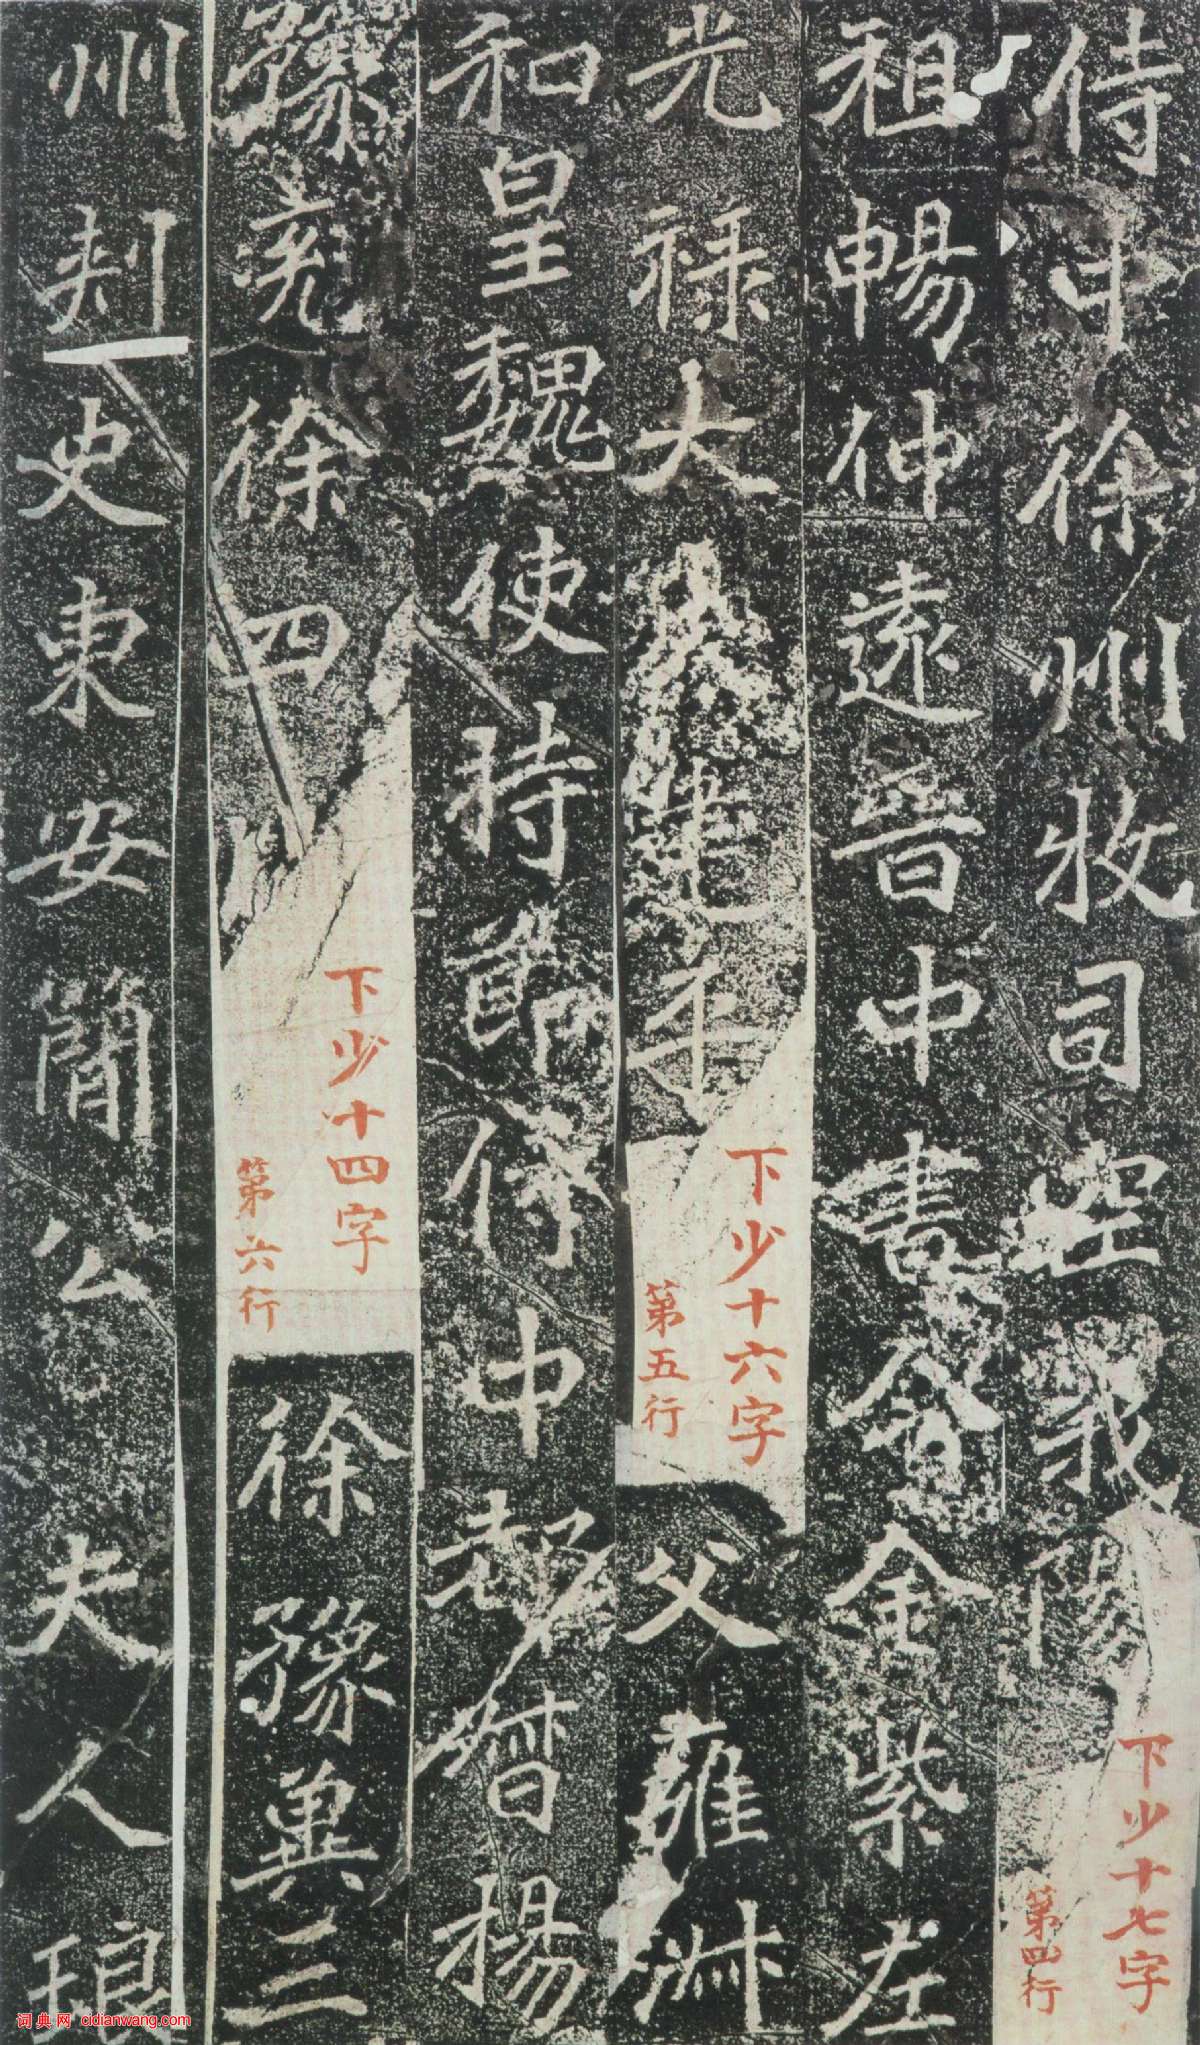 侍中徐州牧司空義陽
下少十七字
第四行
祖暢仲遠晉中書令金紫左
光祿大夫建
下少十六字
第五行
父雍淋
和皇魏使持節侍中都督揚
豫兗徐四
下少十四字
第六行
徐豫冀三
州刺史東安簡公夫人琅
词典网 cidianwang.com